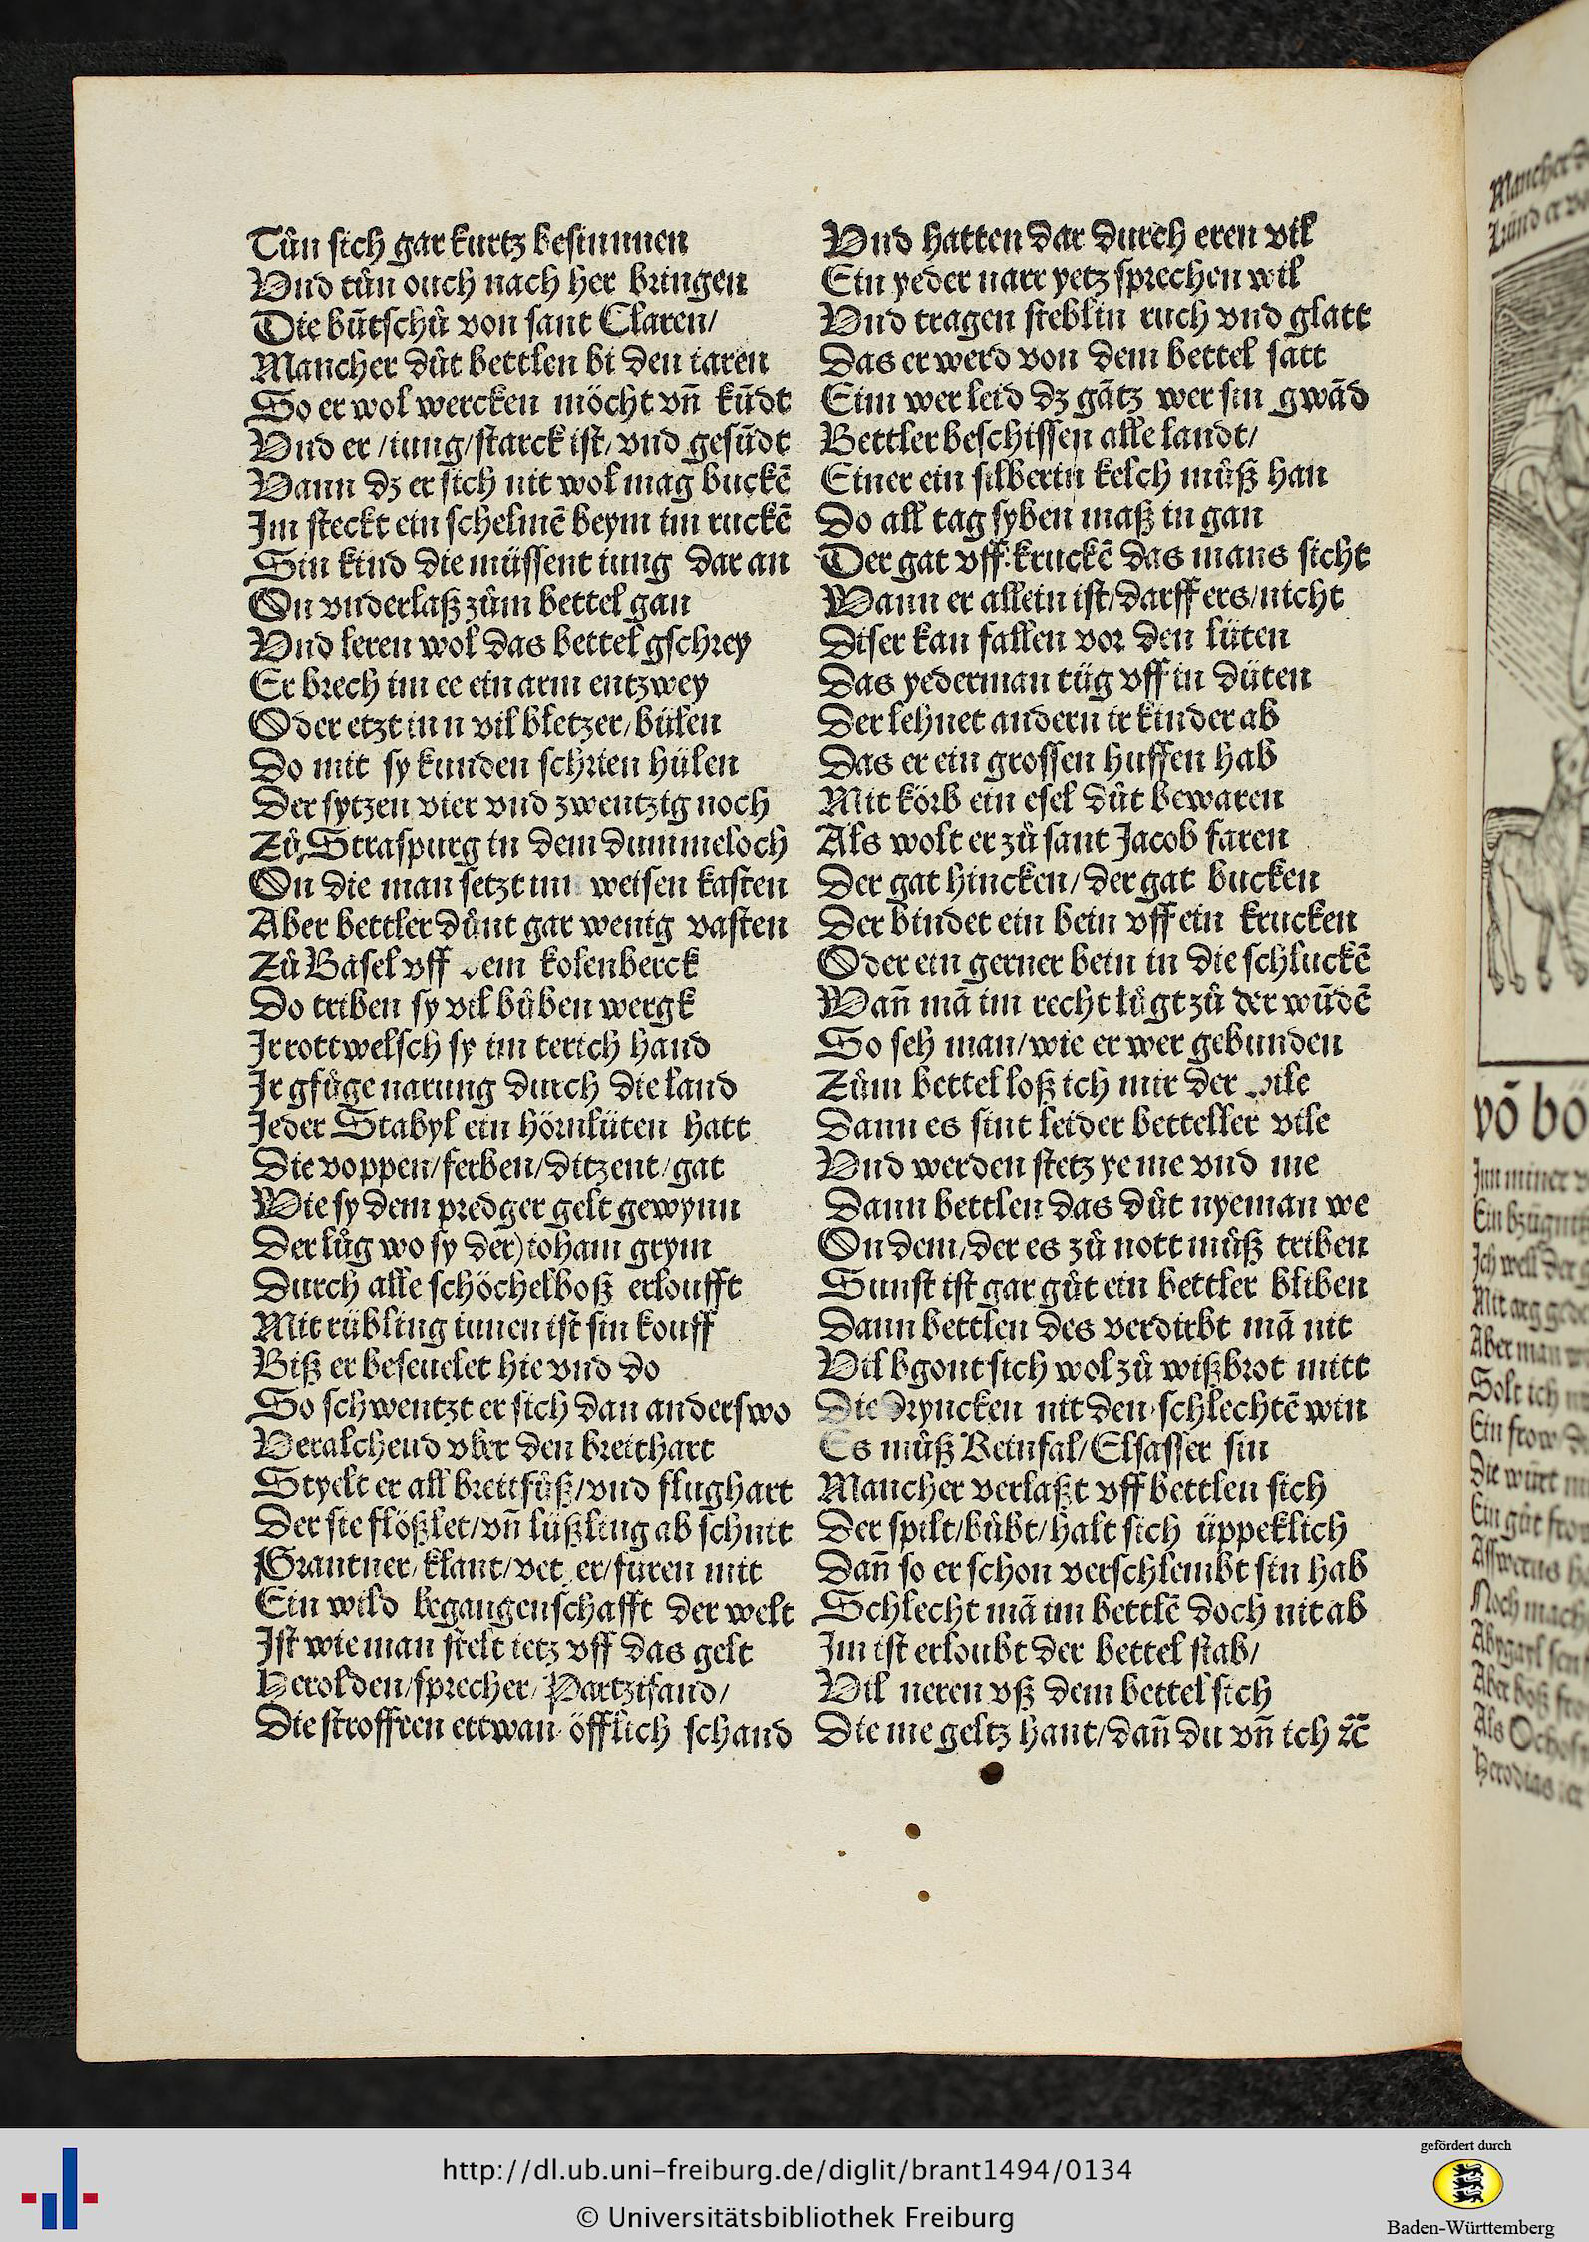 Tůn sich gar kurtz besinnnen
Vnd tůn ouch nach her bringen
Die būtschů von sant Claren/
Mancher důt bettlen bi den iaren
So er wol wercken möcht vn̄ kūdt
Vnd er /iung/starck ist/ vnd gesūdt
Vann dz er sich nit wol mag buckē
Im steckt ein schelmē beym im ruckē
Sin kind die müssent iung dar an
On vnderlaß zům bettel gan
Vnd leren wol das bettel gschrey
Er brech im ee ein arm entzwey
Oder etzt inn vil bletzer/bülen
Do mit sy kunden schrien hülen
Der sytzen vier vnd zwentzig noch
Zů Straspurg in dem dummeloch
On die man setzt im weisen kasten
Aber bettler důnt gar wenig vasten
Zů Basel vff dem kolenberck
Do triben sy vil bůben wergk
Ir rottwelsch sy im terich hand
Ir gfůge narung durch die land
Jeder Stabyl ein hörnlüten hatt
Die voppen/ferben/ditzent/gat
Wie sy dem predger gelt gewynn
Der lůg wo sy der) ioham grym
Durch alle schöchelboß erloufft
Mit rübling iunen ist sin kouff
Biß er beseuelet hie vnd do
So schwentzt er sich dan anderswo
Veralchend vber den breithart
Styelt er all breitfůß/vnd flughart
Der sie flößlet/vn̄ lüßling ab schnit
Grantner/klant/vet er/furen mit
Ein wild begangenschafft der welt
Ist wie man stelt ietz vff das gelt
Herolden/sprecher/Partzifand/
Die stroffren ettwan öfflich schand
Vnd hatten dar durch eren vil
Ein yeder narr yetz sprechen wil
Vnd tragen steblin ruch vnd glatt
Das er werd von dem bettel satt
Eim wer leid dz gātz wer sin gwād
Bettler beschissen alle landt/
Einer ein silberin kelch můß han
Do all tag syben maß in gan
Der gat vff kruckē das mans sicht
Wann er allein ist/darff ers/nicht
Diser kan fallen vor den lüten
Das yederman tüg vff in düten
Der lehnet andern ir kinder ab
Das er ein grossen huffen hab
Mit körb ein esel důt bewaren
Als wolt er zů sant Jacob faren
Der gat hincken/der gat bucken
Der bindet ein bein vff ein krucken
Oder ein gerner bein in die schluckē
Wan̄ mā im recht lůgt zů der wūdē
So seh man/wie er wer gebunden
Zům bettel loß ich mir der wile
Dann es sint leider betteller vile
Vnd werden stetz ye me vnd me
Dann bettlen das důt nyeman we
On dem/der es zů nott můß triben
Sunst ist gar gůt ein bettler bliben
Dann bettlen des verdirbt mā nit
Vil bgont sich wol zů wißbrot mitt
Die dryncken nit den schlechtē win
Es můß Reinfal/Elsasser sin
Mancher verlaßt vff bettlen sich
Der spilt/bůbt/halt sich üppeklich
Dan̄ so er schon verschlembt sin hab
Schlecht mā im bettlē doch nit ab
Im ist erloubt der bettel stab/
Vil neren vß dem bettel sich
Die me geltz hant/dan̄ du vn̄ ich ⁊c̄
Mancher
vō bö
Inn miner
Ich well der
Aber man
Solt ich
Ein frow
Die würt
Ein gůt
Noch mach
Herodias
http://dl.ub.uni-freiburg.de/diglit/brant1494/0134
© Universitätsbibliothek Freiburg
gefördert durch
Baden-Württemberg